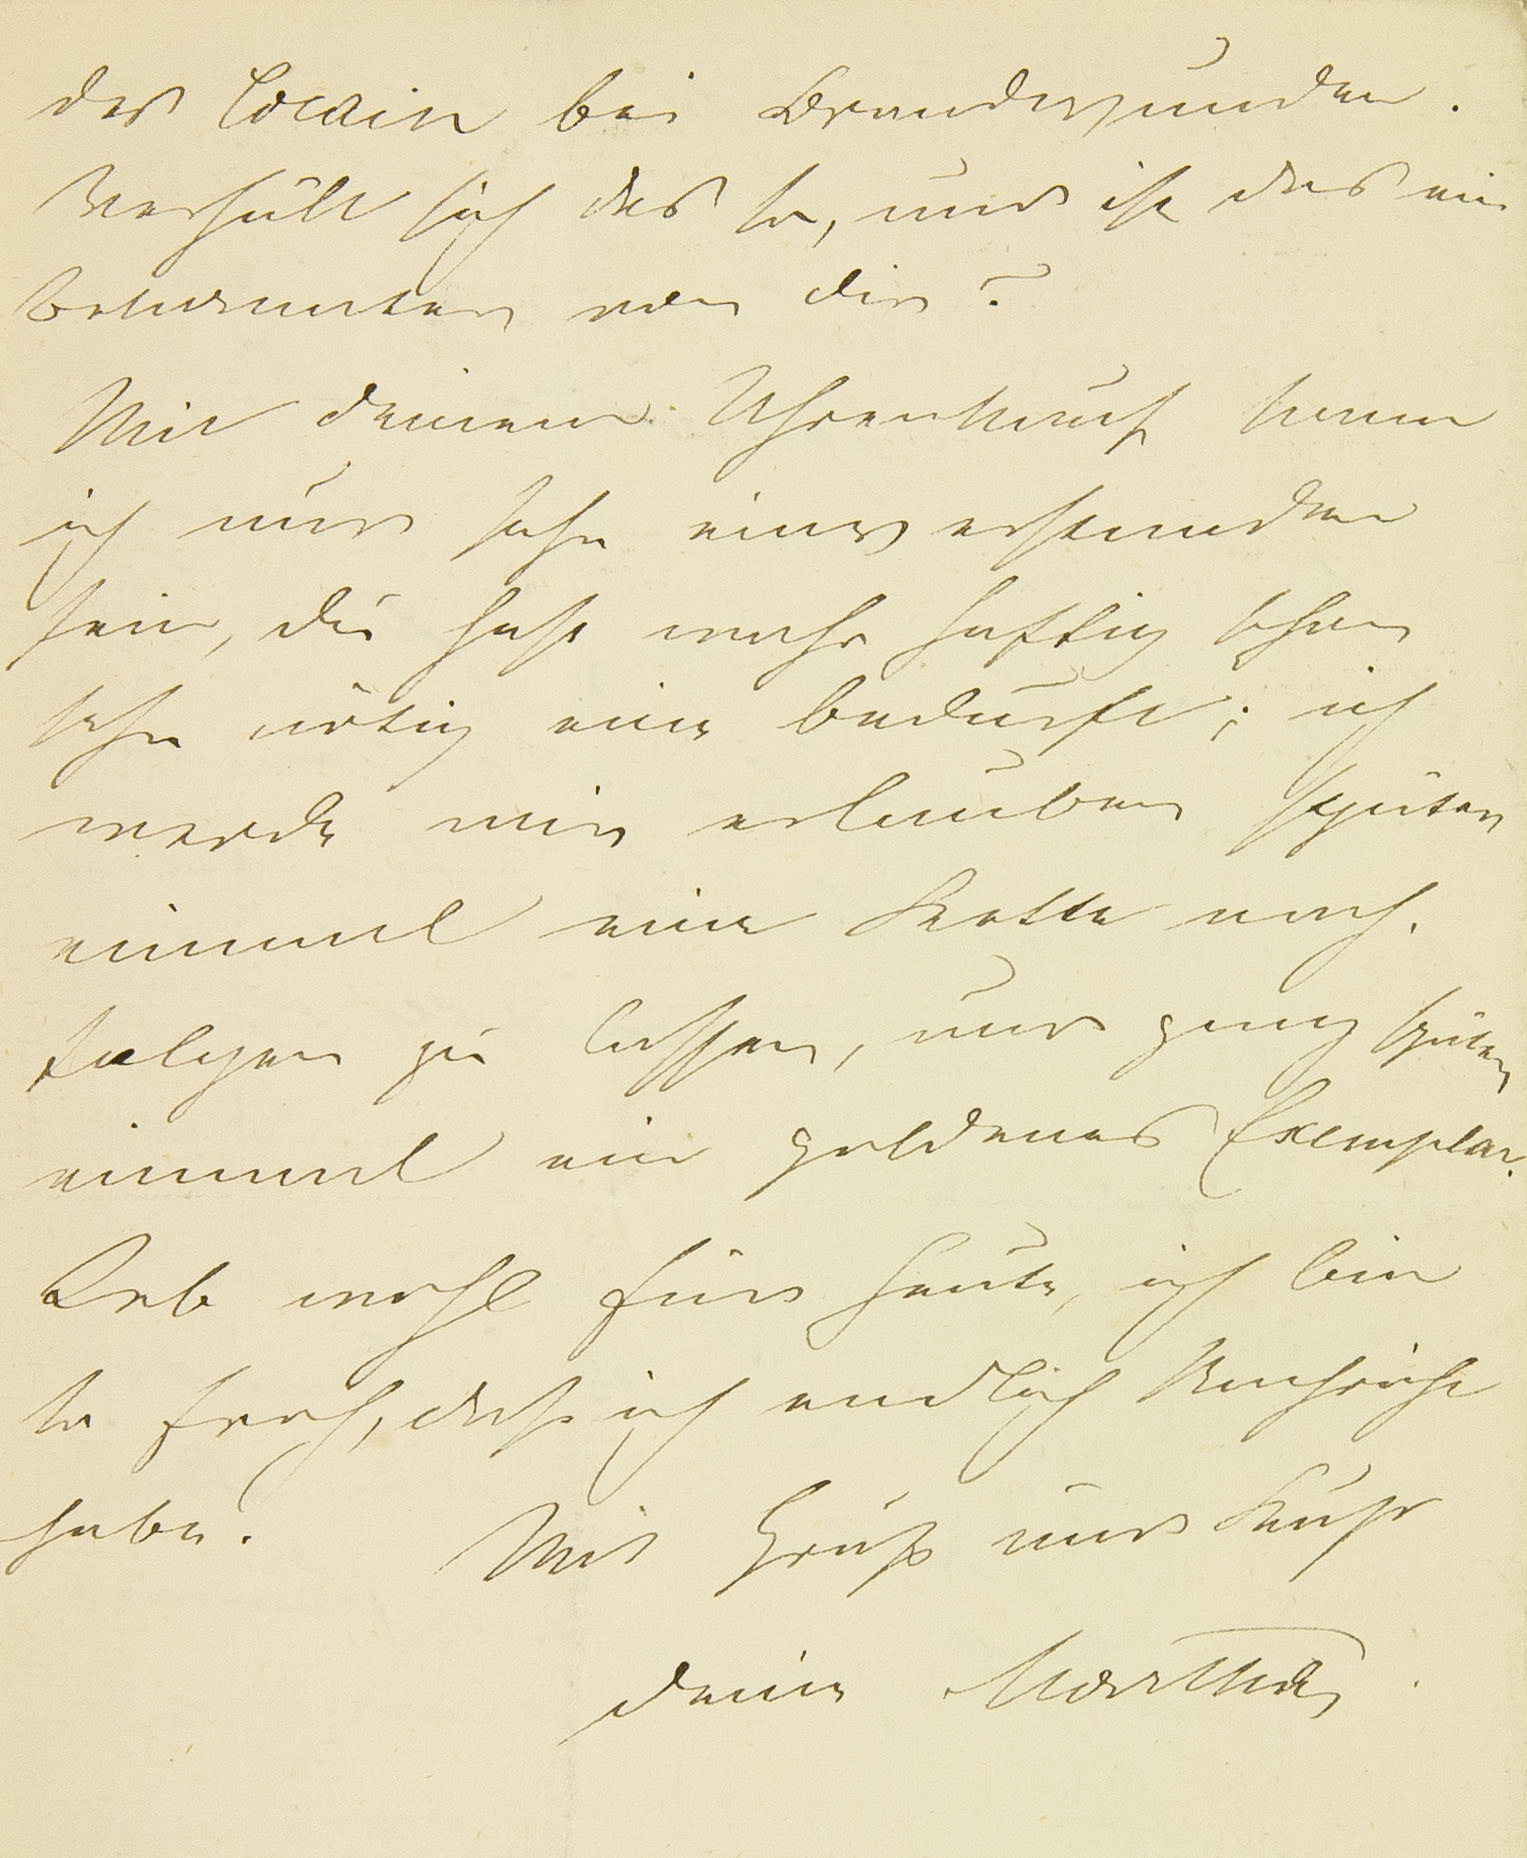 des Cocain bei Brandwunden.
Verhält sich das so, und ist das ein
Bekannter von dir?
Mit deinem Uhrenkauf kann
ich nur sehr einverstanden
sein, du hast wahrhaftig schon
sehr nötig eine bedurft; ich
werde mir erlauben später
einmal eine Kette nach-
folgen zu lassen, und ganz später
einmal ein goldenes Exemplar.
Leb wohl für heute, ich bin
so froh, daß ich endlich Nachricht
habe. Mit Gruß und Kuß
deine Martha.